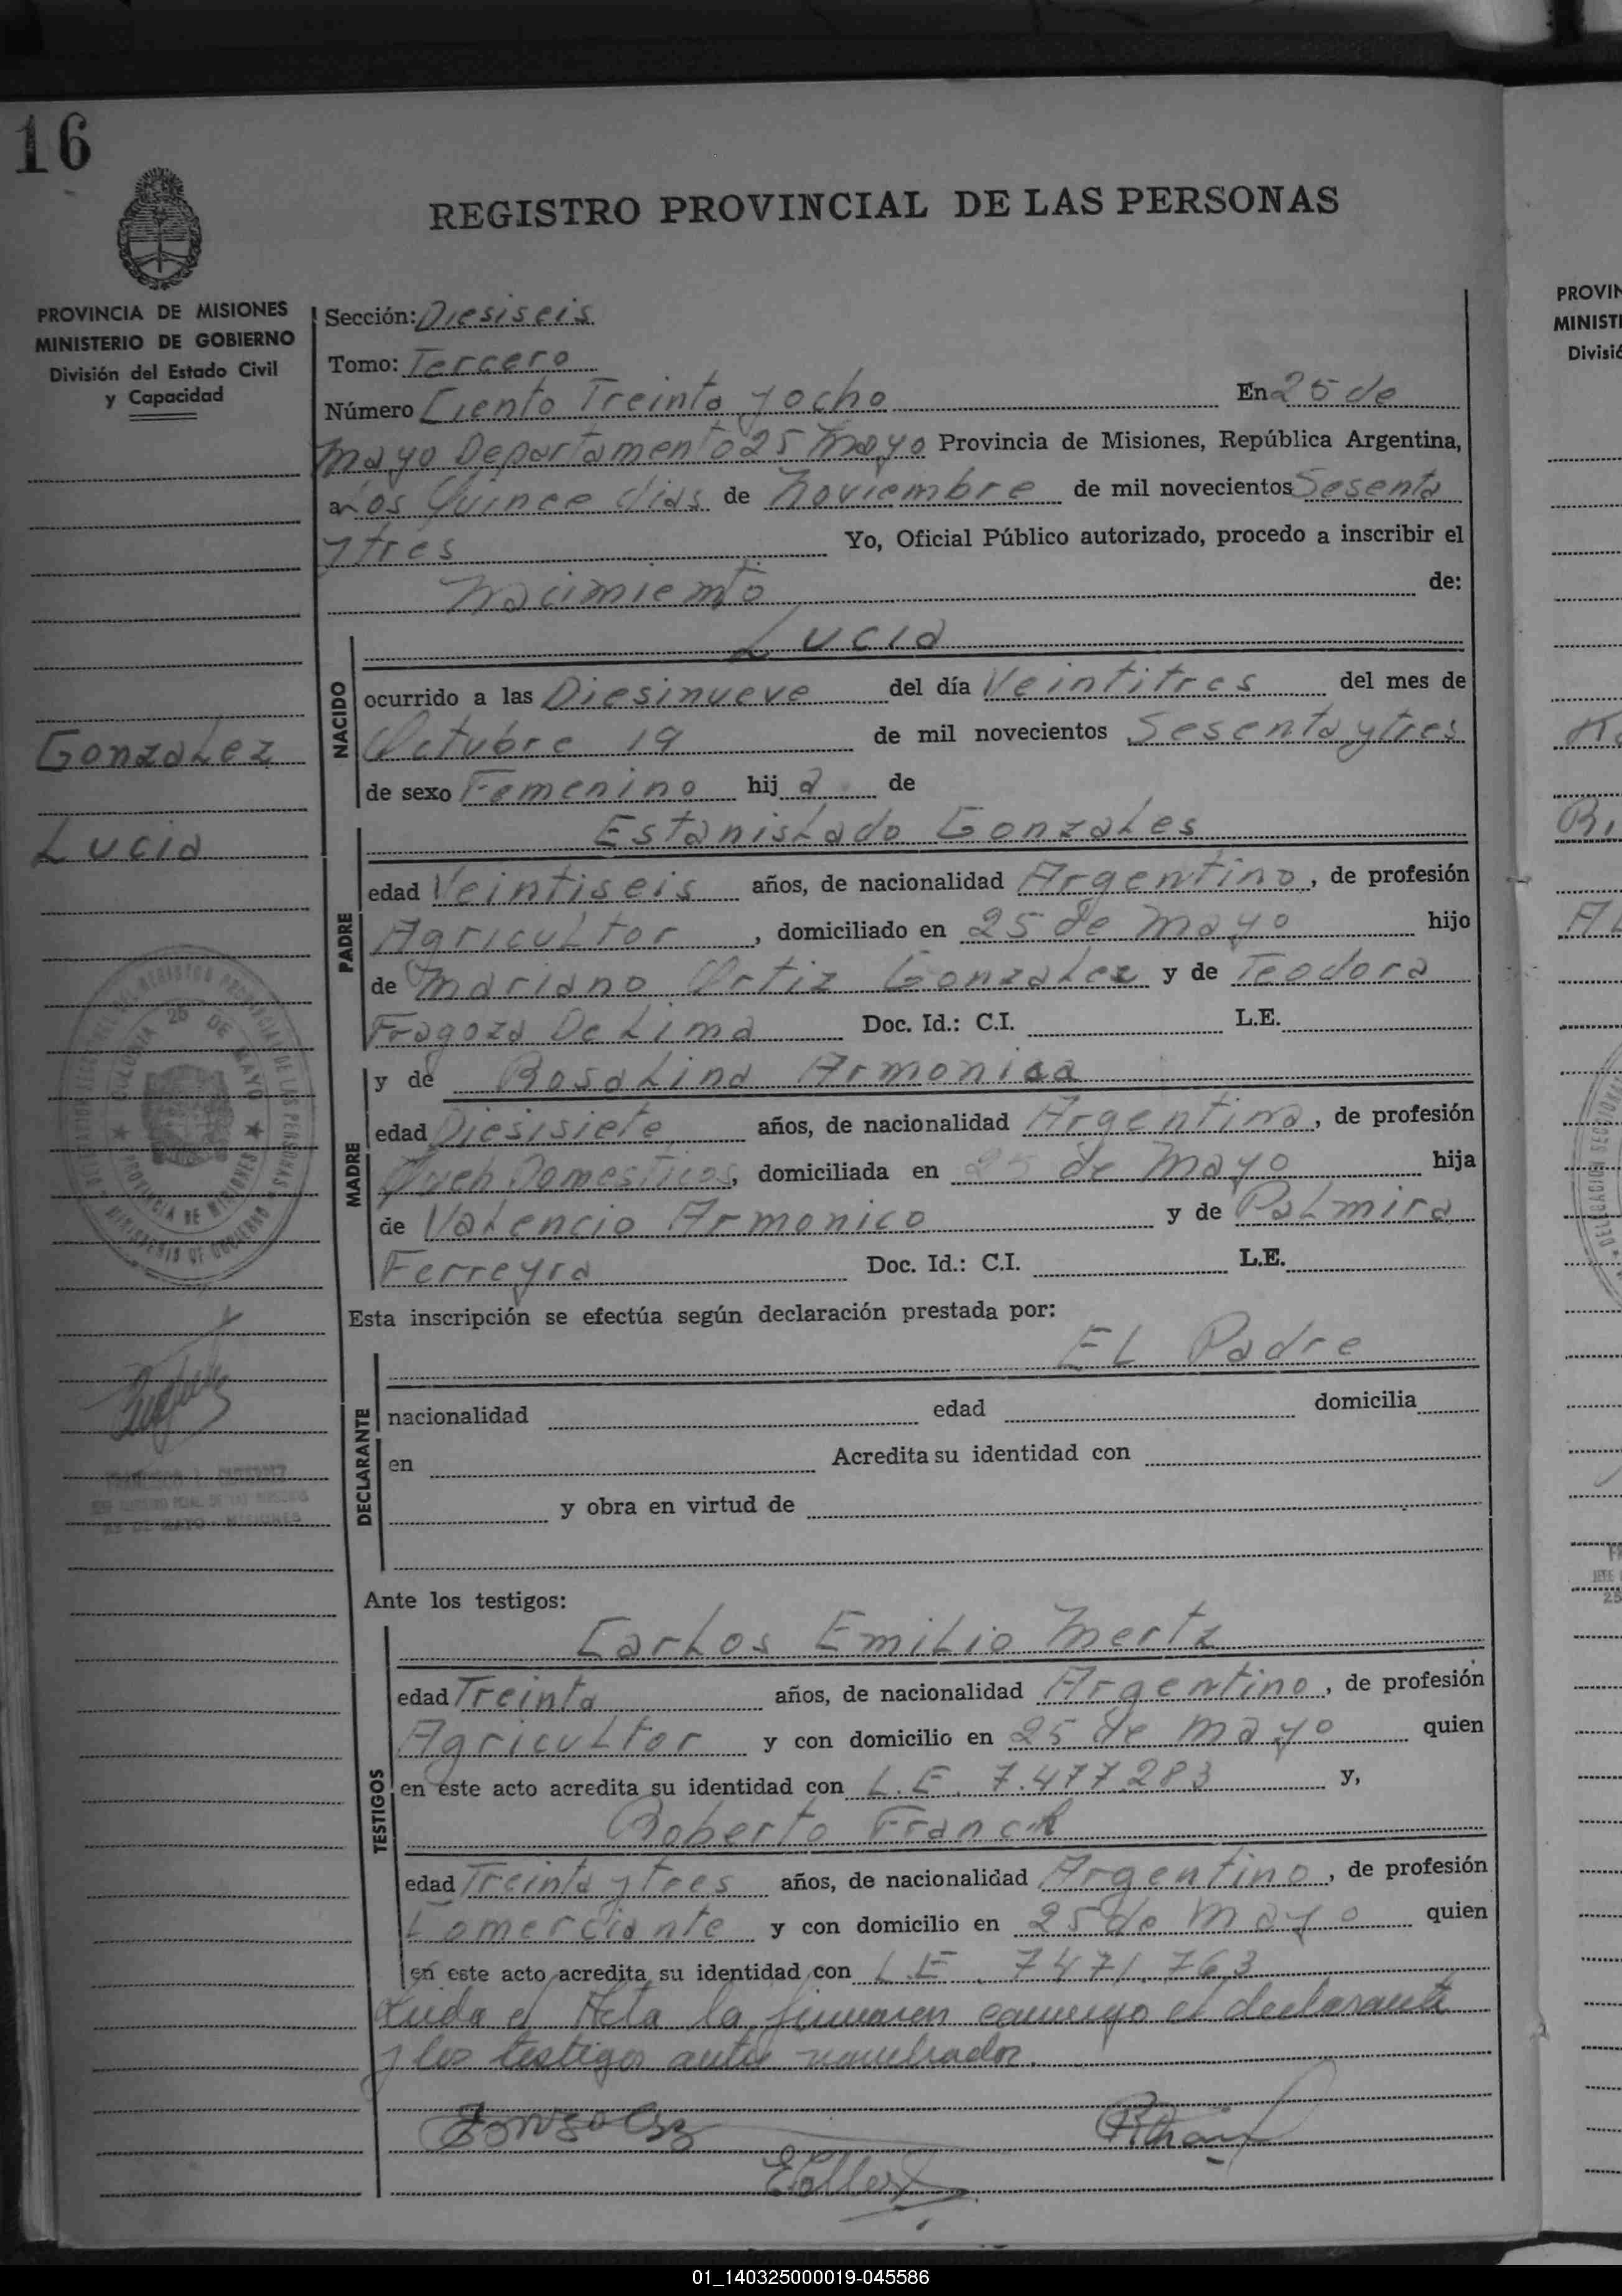 16
REGISTRO PROVINCIAL DE LAS PERSONAS
PROVINCIA DE MISIONES
MINISTERIO DE GOBIERNO
División del Estado Civil
y Capacidad
Sección: Diesiseis
Tomo: Tercero
Número Ciento Treinta y ocho En 25 de
mayo Departamento 25 mayo Provincia de Misiones, República Argentina,
a Los Quince dias de Noviembre de mil novecientos Sesenta
y tres Yo, Oficial Público autorizado, procedo a inscribir el
nacimiento de:
Lucia
NACIDO
ocurrido a las Diesinueve del día Veintitres del mes de
Octubre 19 de mil novecientos Sesenta y tres
de sexo Femenino hija de
Gonzalez
Lucia
PADRE
Estanislado Gonzales
edad Veintiseis años, de nacionalidad Argentino, de profesión
Agricultor, domiciliado en 25 de mayo hijo
de Mariano Ortiz Gonzalez y de Teodora
Fragoza De Lima Doc. Id.: C.I. L.E.
MADRE
y de Rosalina Armonica
edad Diesisiete años, de nacionalidad Argentina, de profesión
Domesticos, domiciliada en 25 de mayo hija
de Valencio Armonico y de Palmira
Ferreyra Doc. Id.: C.I. L.E.
COLONIA 25 DE MAYO
PROVINCIA DE MISIONES
MINISTERIO DE GOBIERNO
Esta inscripción se efectúa según declaración prestada por:
DECLARANTE
EL Padre
nacionalidad edad domicilia
en Acredita su identidad con
y obra en virtud de
25 DE MAYO - MISIONES
Ante los testigos:
TESTIGOS
Carlos Emilio Mertz
edad Treinta años, de nacionalidad Argentino, de profesión
Agricultor y con domicilio en 25 de mayo quien
en este acto acredita su identidad con L.E. 7.477.283 y,
Roberto Franck
edad Treinta y tres años, de nacionalidad Argentino, de profesión
Comerciante y con domicilio en 25 de mayo quien
en este acto acredita su identidad con L.E. 7471.763
Leida el Acta la firmaron conmigo el declarante
y los testigos antes nombrados.
Gonzalez
PROVIN
MINIST
Divisió
01_140325000019-045586